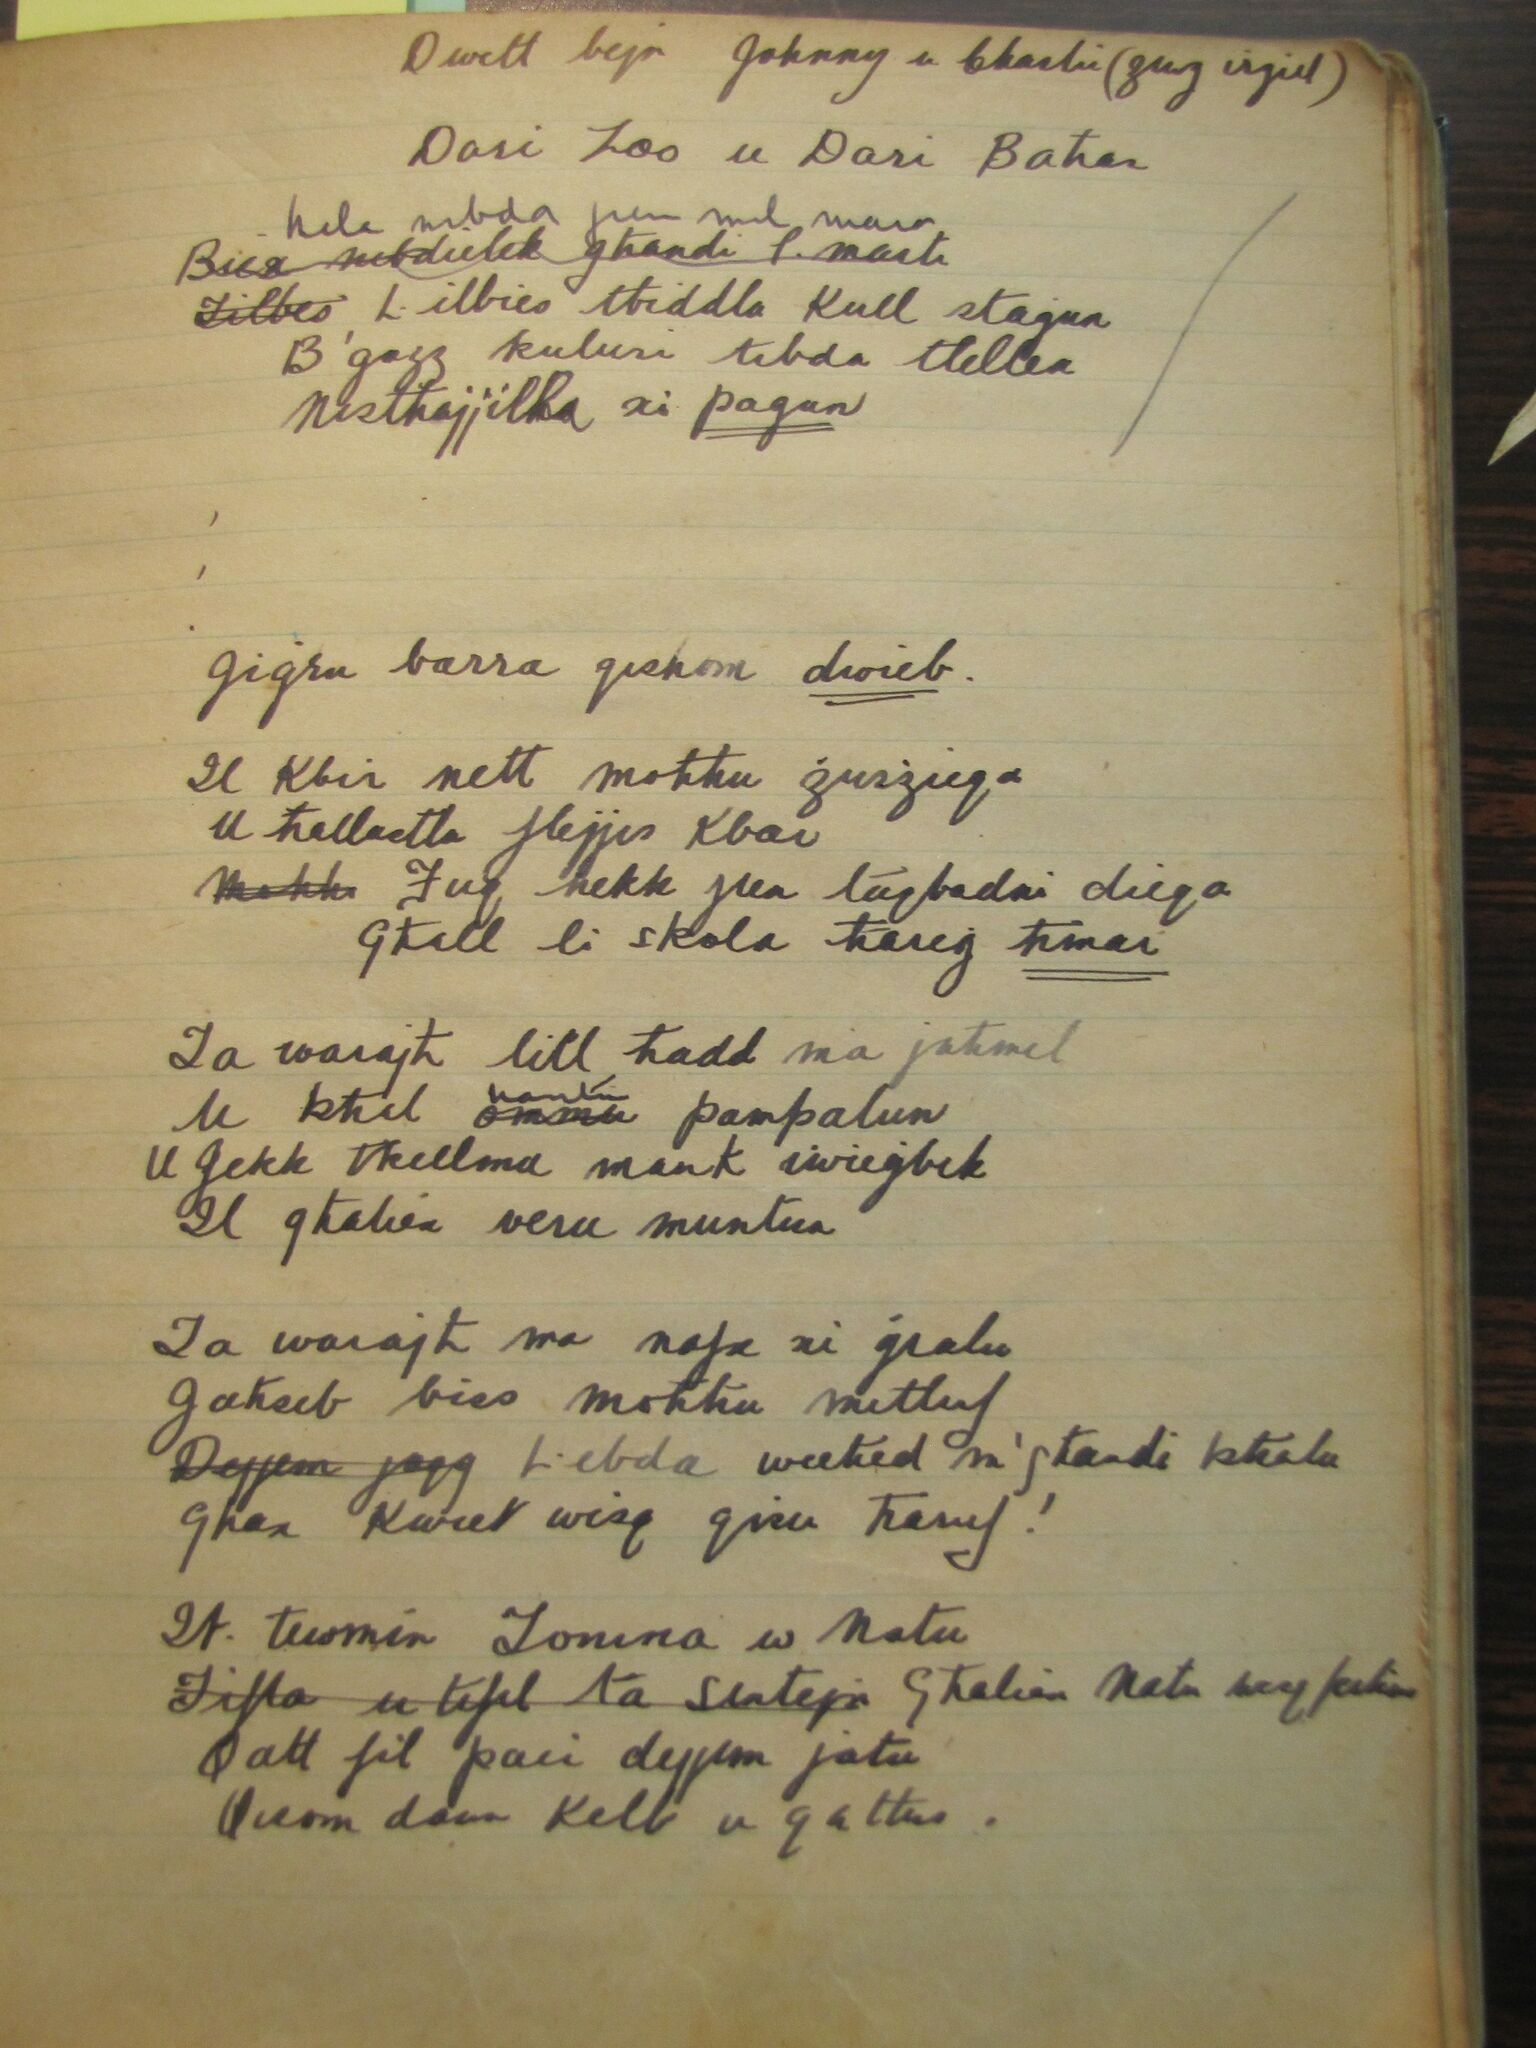 Dwett bejn Johnny u Charlie (żewġ irġiel)
Dari Zoo u Dari Baħar
hela nibda jien mil mara
Biex nibdielek għandi l. marti
Jilbes L-ilbies tbiddlu Kull staġun
B'għozz kuluri tibda tlellex
Nistħajjilha xi pagun
Jiġru barra qishom dwieb.
Il Kbir nett moħħu żurżieqa
U ħallastlu flejjes Kbar
Moħħ Fuq hekk jien tiegħi dieqa
Għall li skola ħareġ ħmar
Ta warajh lill ħadd ma jaħmel
U ktiel ommu pampalun
U Jekk tkellmu mank iwieġbek
Il għaliex veru muntun
Ta warajh ma nafx xi ġralu
Jaħseb biss moħħu mitluf
Dejjem jogħ L-ebda wieħed m'għandi bħalu
Għax Kwiet wisq qisu ħaruf!
It-tewmin Zonina w Natu
Jisfa u tifel ta sentejn Għaliex Natu
Qatt fil paċi dejjem jatu
Qishom dawn Kelb u qattus.